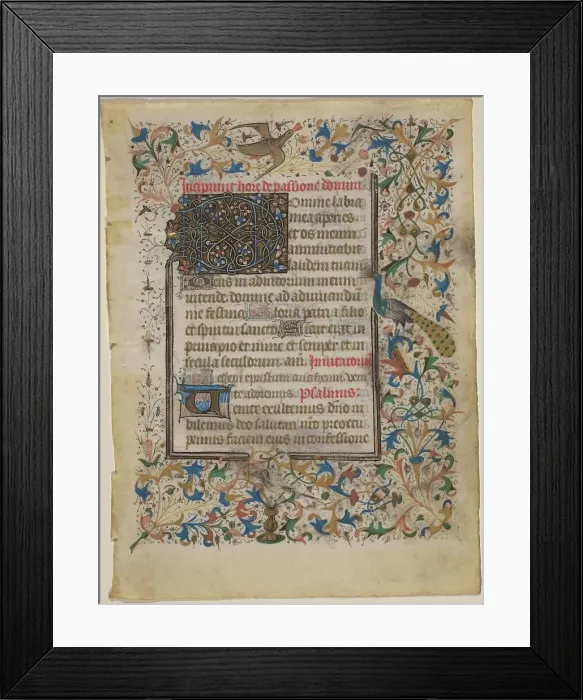 Incipiunt hore de passione domini
Domine labia
mea aperies
et os meum
annuntiabit
laudem tuam
Deus in adiutorium meum
intende domine ad adiuvandũ
me festina Gloria patri et filio
et spiritui sancto Sicut erat in
principio et nunc et semper et in
secula seculorum am̃. Invitatoriũ
Psalmus:
Venite exultemus dño iu
bilemus deo salutari nro preoccu
pemus faciem eius in confessione